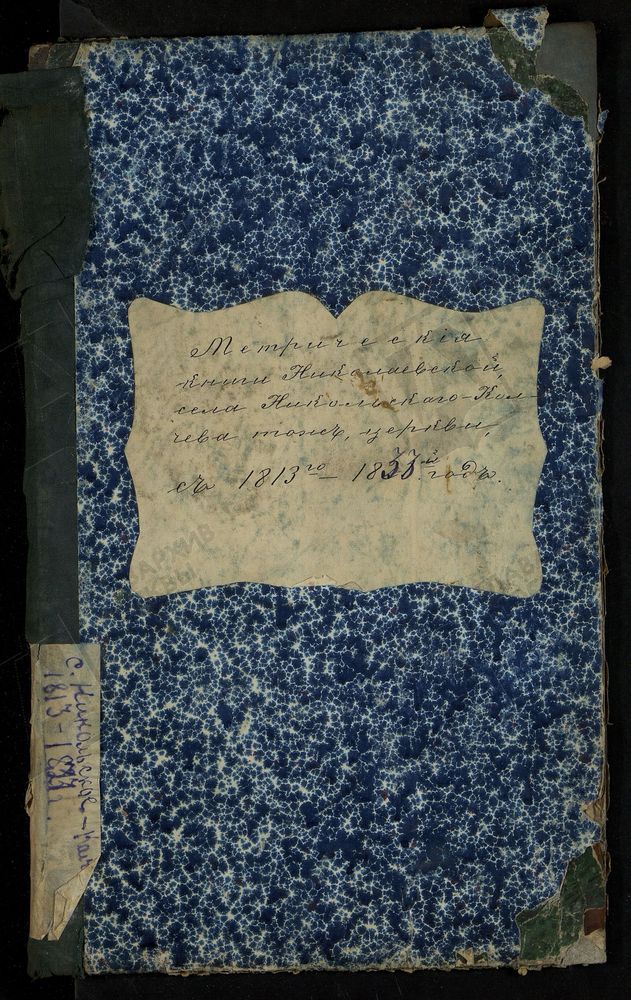 Метрическія
книги Николаевской,
села Никольскаго-Кол-
чева тожъ, церкви,
съ 1813го – 1833й годъ.
с. Никольское –
1813-1833г.
АРХИВ